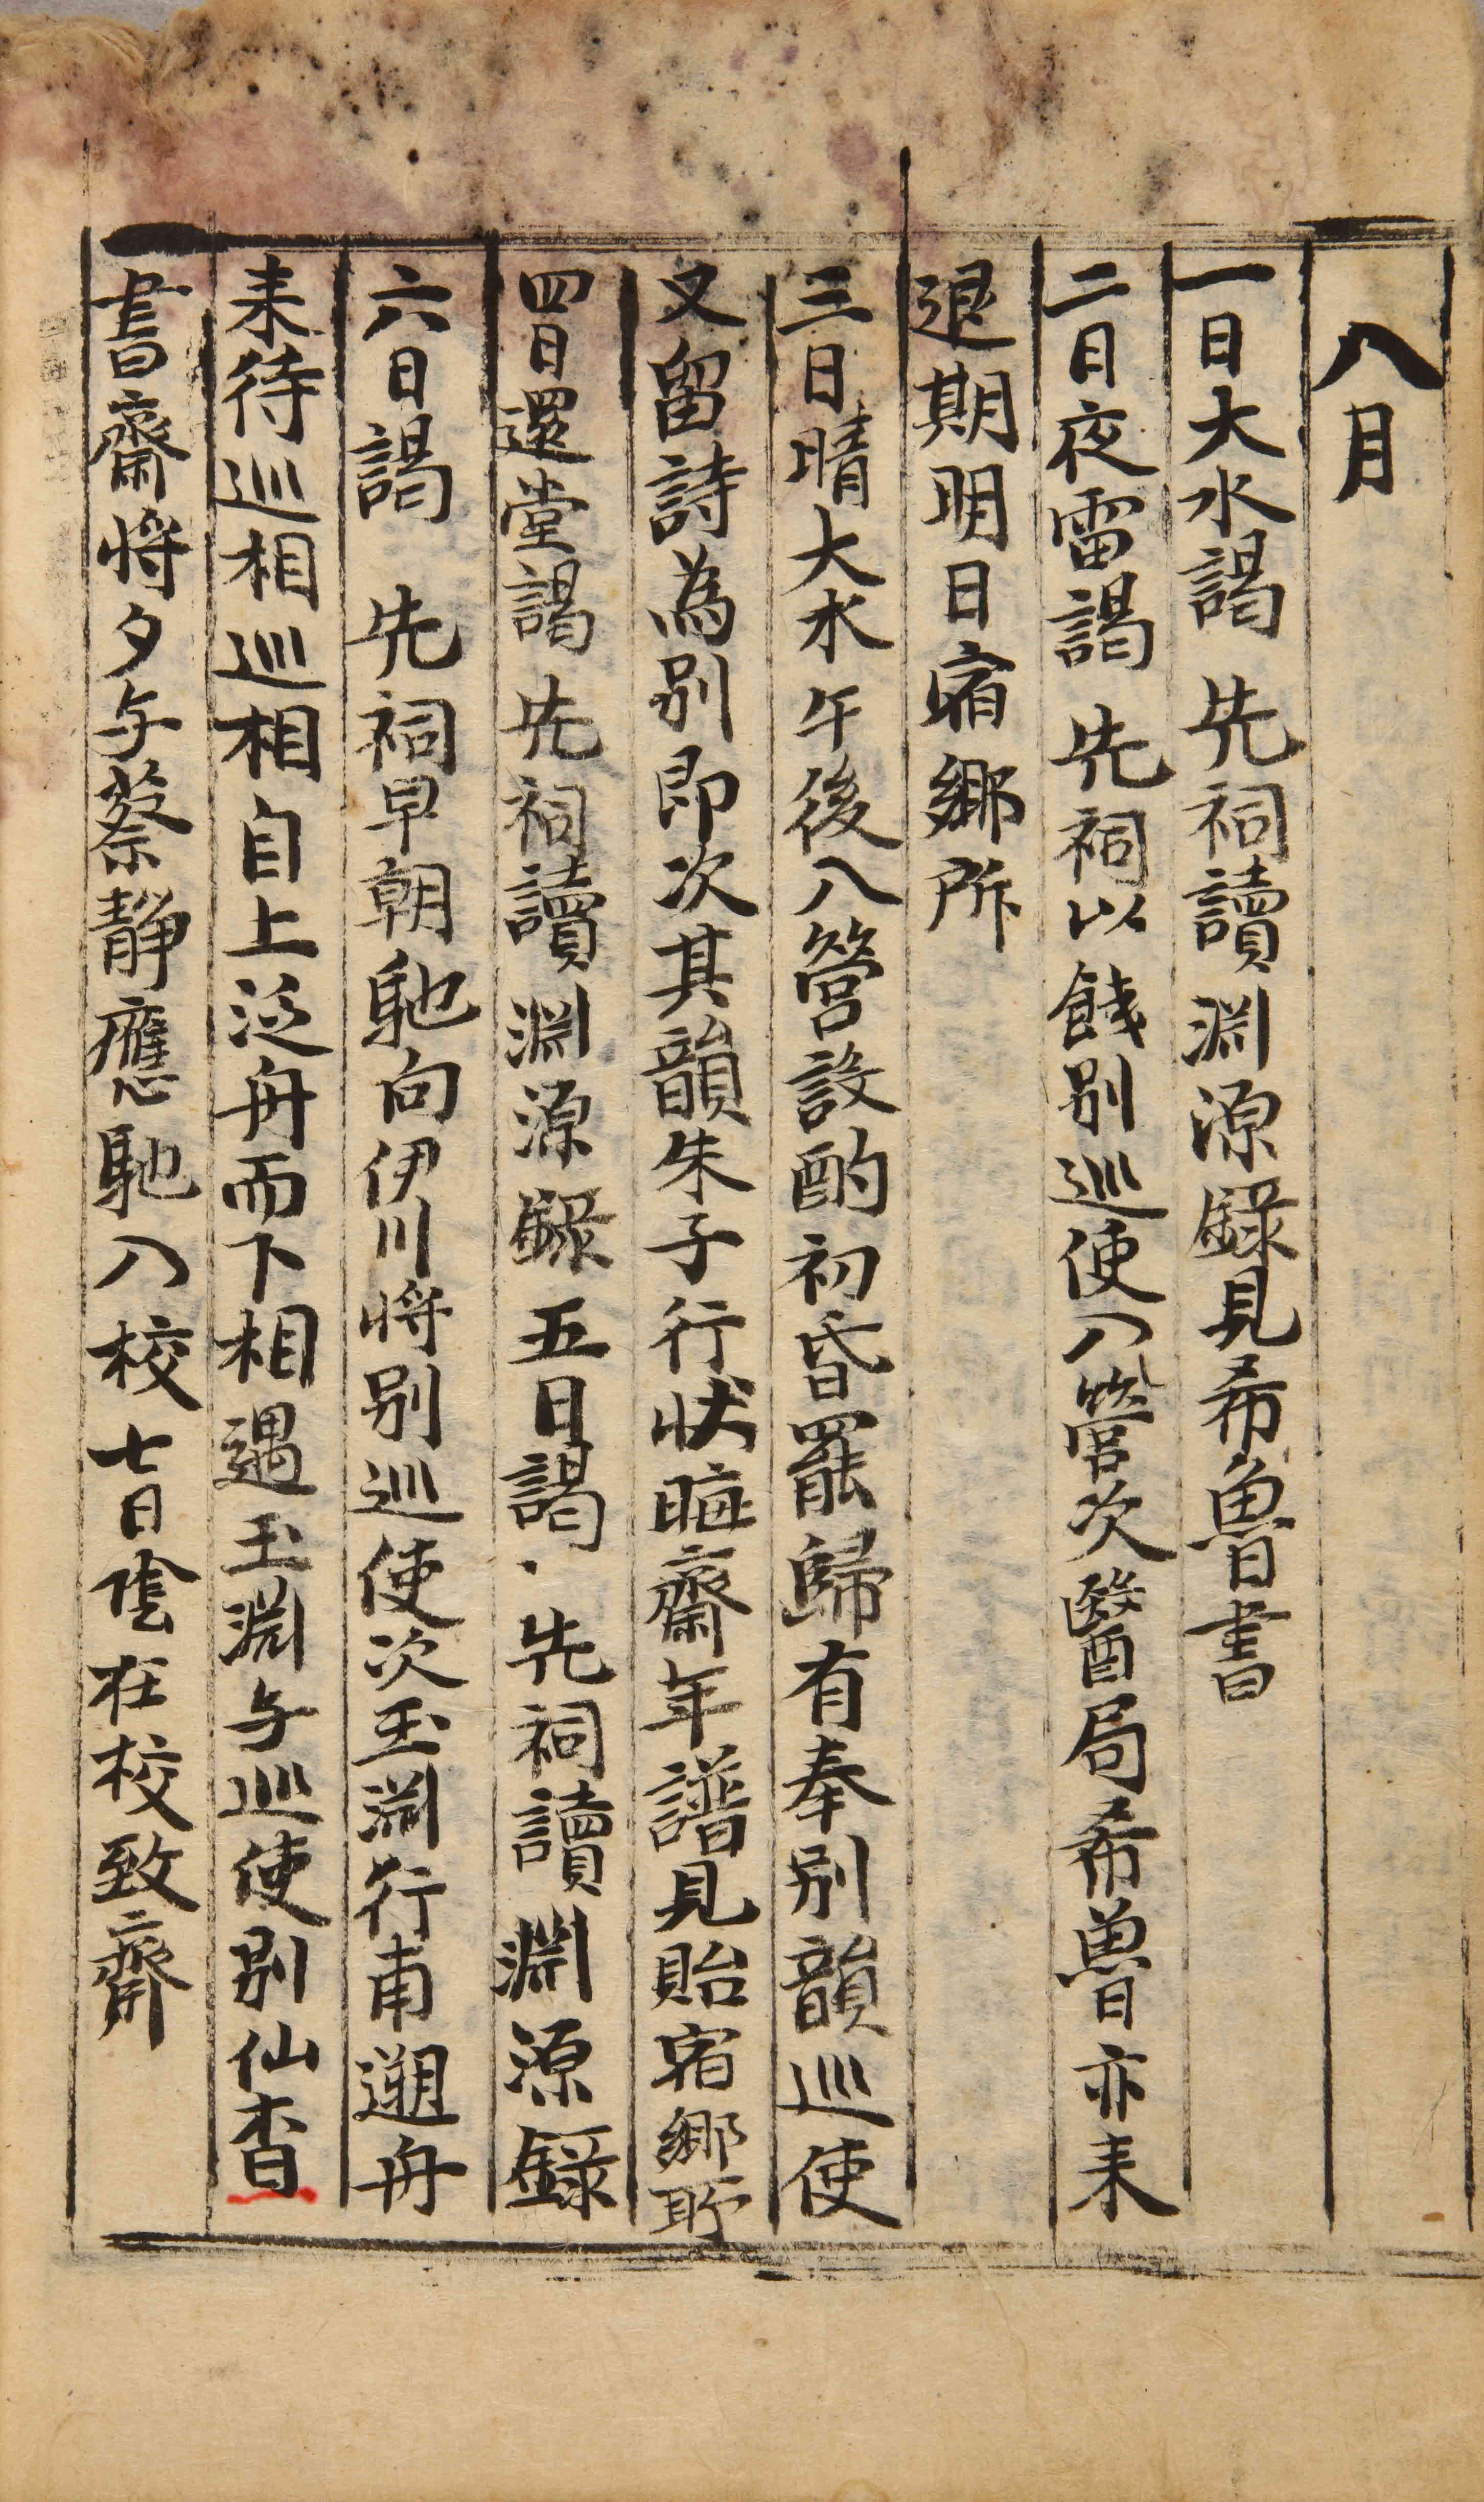 八月
一日大水謁 先祠讀淵源錄見希魯書
二日夜雷謁 先祠以餞別巡使入營次醫局希魯亦来
退期明日宿鄉所
三日晴大水午後入營設酌初昏罷歸有奉別韻巡使
又留詩為別即次其韻朱子行状晦齋年譜見貽宿鄉所
四日還堂謁 先祠讀淵源錄 五日謁 先祠讀淵源錄
六日謁 先祠早朝馳向伊川将別巡使次玉淵行甫遡舟
来待巡相巡相自上泛舟而下相遇玉淵与巡使別仙査
書齋将夕与蔡靜應馳入校 七日陰在校致齋